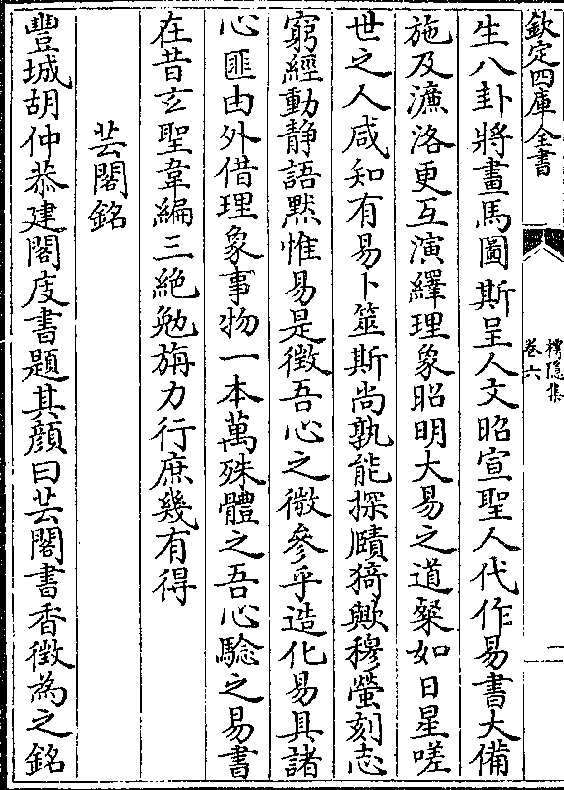 欽定四庫全書
樗隠集
卷六
生八卦將畫馬圖斯呈人文昭宣聖人代作易書大備
施及濂洛更互演繹理象昭明大易之道粲如日星嗟
世之人咸知有易卜筮斯尚孰能探賾猗歟穆螢刻志
窮經動静語默惟易是徵吾心之微參乎造化易具諸
心匪由外借理象事物一本萬殊體之吾心驗之易書
在昔玄聖韋編三絶勉旃力行庶幾有得
芸閣銘
豐城胡仲恭建閣庋書題其顔曰芸閣書香徵為之銘